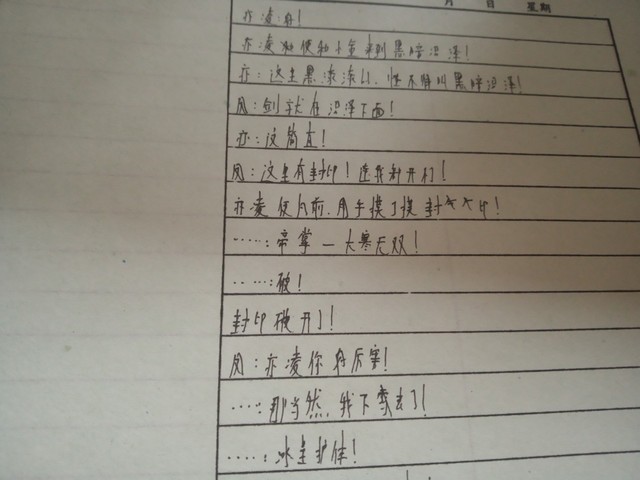 月 日 星期
亦凌好!
亦凌和使和十至来到黑暗沼泽!
亦:这里黑漆漆的、怪不得叫黑暗沼泽!
风:剑就在沼泽下面!
亦:这简直!
风:这里有封印!连我都开不了!
亦凌使上前,用手摸了摸封印!
……:帝掌一大寒无双!
……:破!
封印被开了!
风:亦凌你好厉害!
……:那当然,我下去了!
……:冰皇护体!